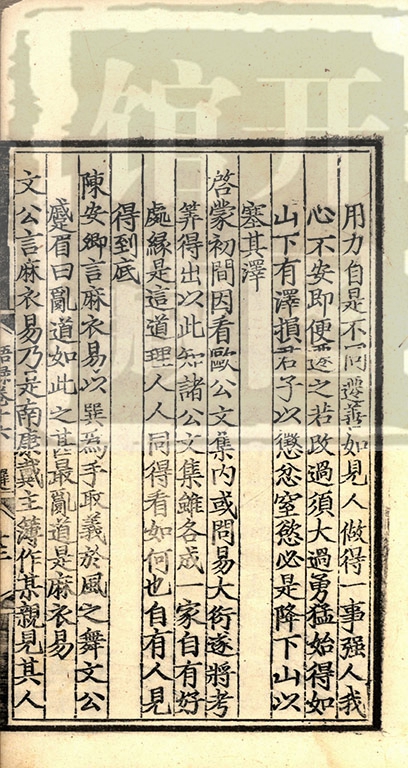 用力自是不同遷善如見人做得一事强人我
心不安即便遷之若改過須大過勇猛始得如
山下有澤損君子以懲忿窒慾必是降下山以
塞其澤
啓蒙初間因看歐公文集内或問易大衍遂將考
筭得出以此知諸公文集雖各成一家自有好
處緣是這道理人人同得看如何也自有人見
得到底
陳安卿言麻衣易以巽為手取義於風之舞文公
蹙眉曰亂道如此之甚最亂道是麻衣易
文公言麻衣易乃是南康戴主簿作某親見其人
語録卷十六